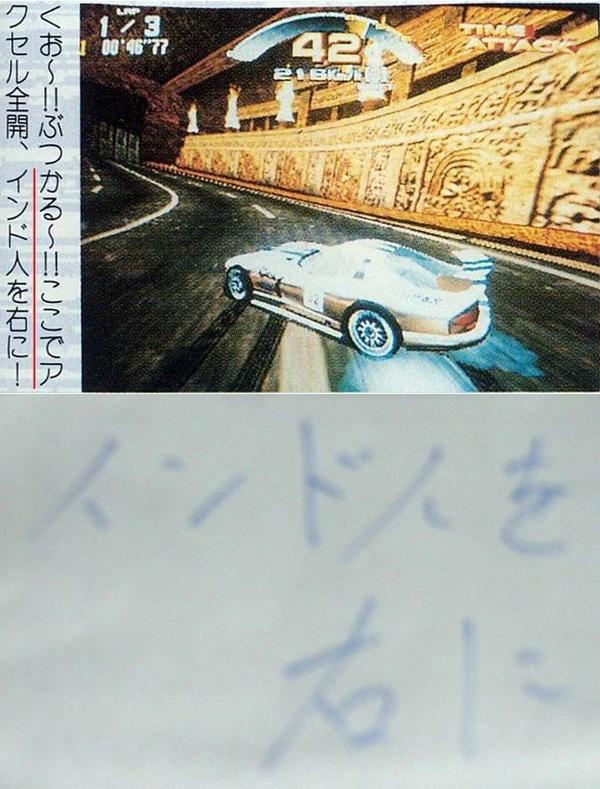 くお〜!!ぶつかる〜!!ここでア
クセル全開、インド人を右に!
LAP
1/3
00'46"77
42
218Km/h
TIME
ATTACK
インド人を
右に